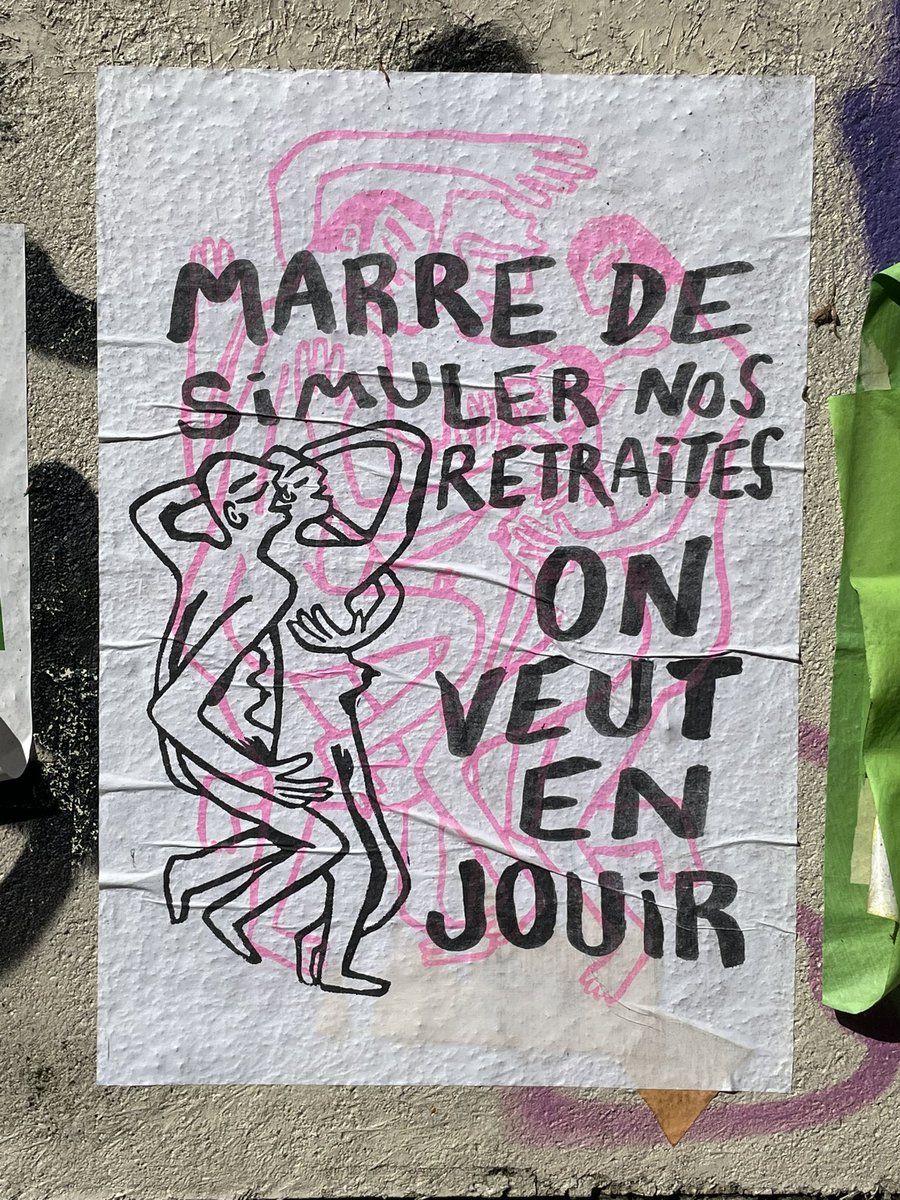 MARRE DE
SiMULER NOS
RETRAiTES
ON
VEUT
EN
JOUiR